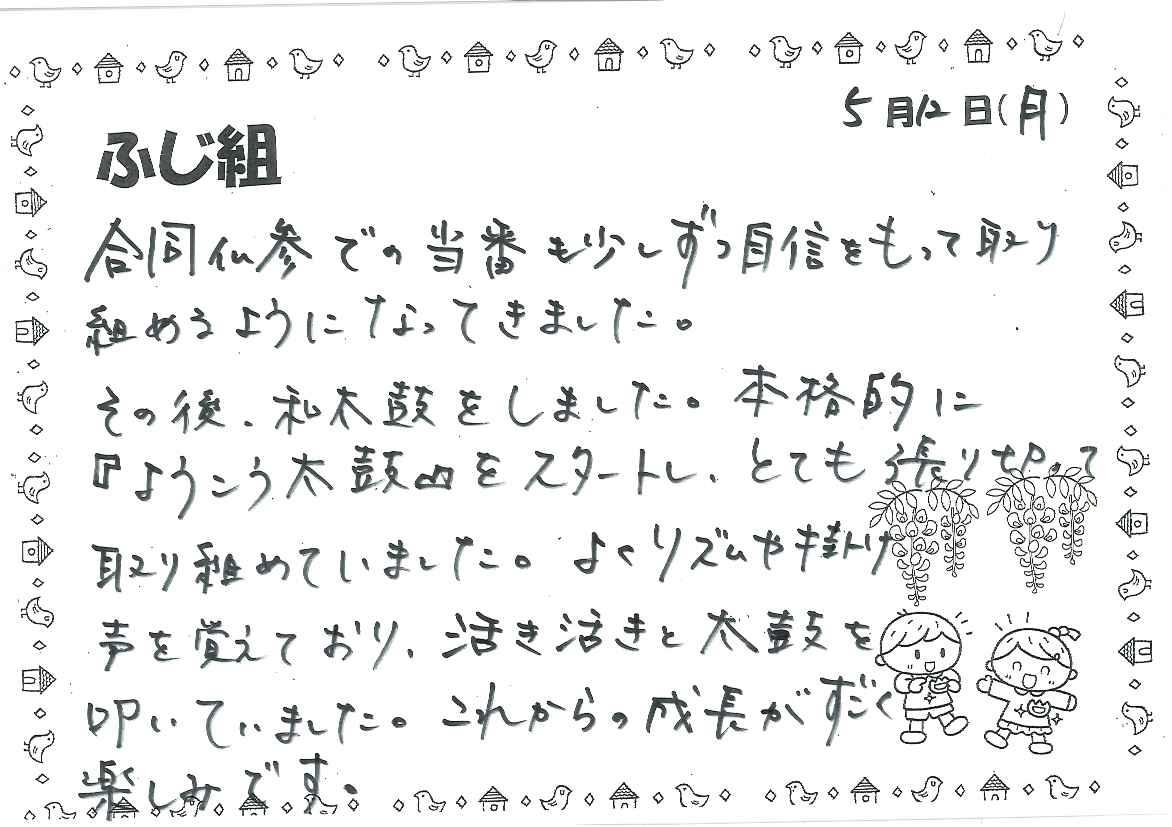 5月12日(月)
ふじ組
合同仏参での当番も少しずつ自信をもって取り
組めるようになってきました。
その後、和太鼓をしました。本格的に
『ようこう太鼓』をスタートし、とても張り切って
取り組めていました。よくリズムや掛け
声を覚えており、活き活きと太鼓を
叩いていました。これからの成長がすごく
楽しみです。